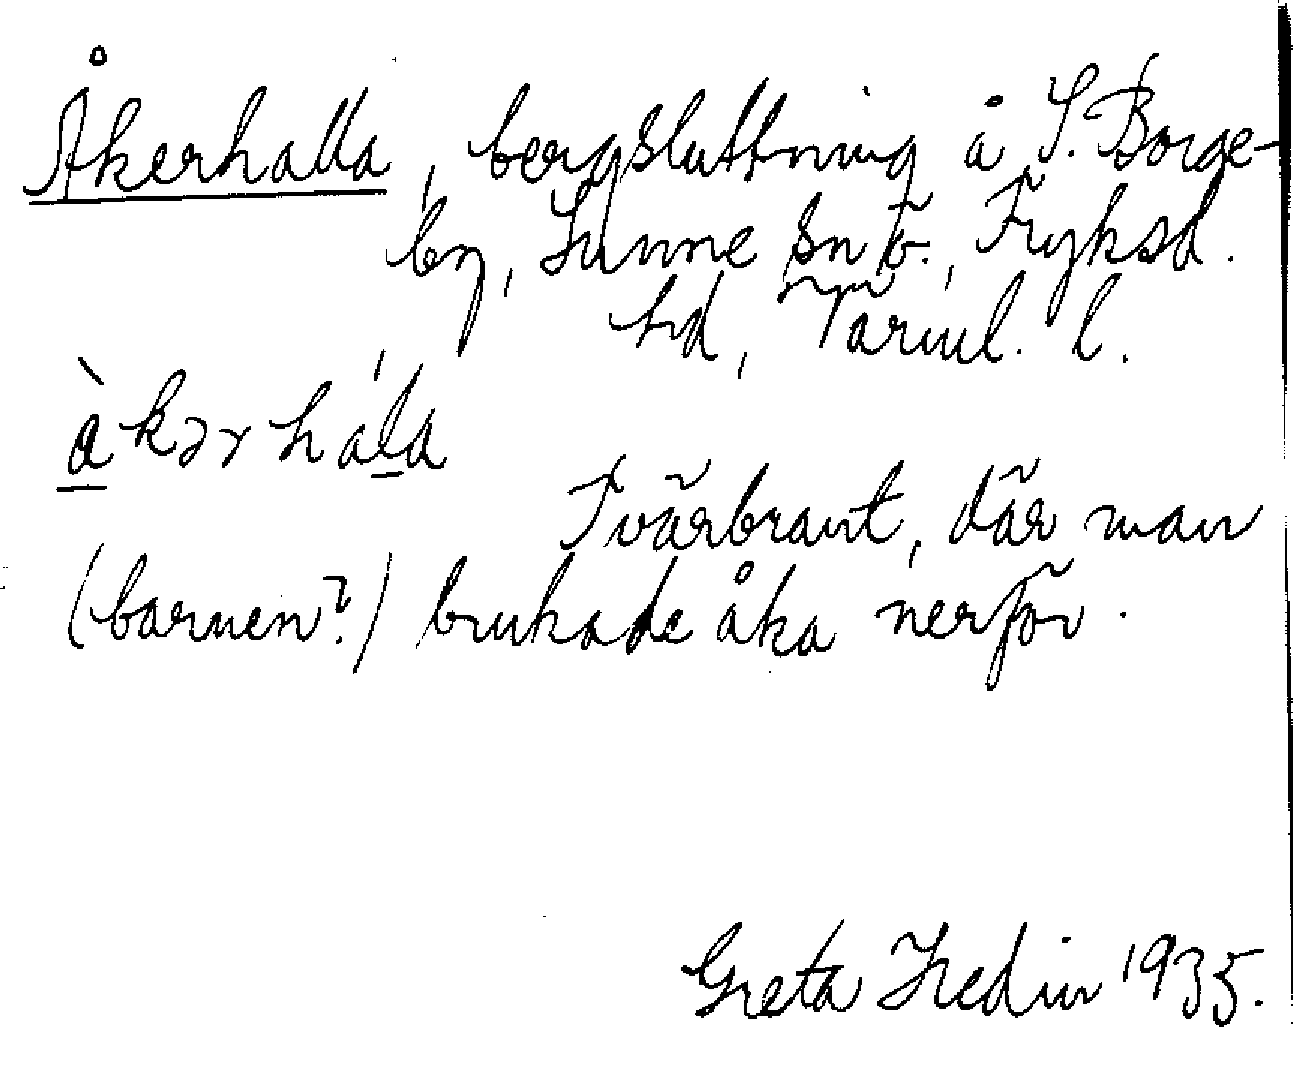 Åkerhalla, bergsluttning å S. Borge-
by, Sunne sn ö., Fryksd.
hd, Värml. l.
àkərhála
Tvärbrant, där man
(barnen?) brukade åka nerför.
Greta Hedin 1935.